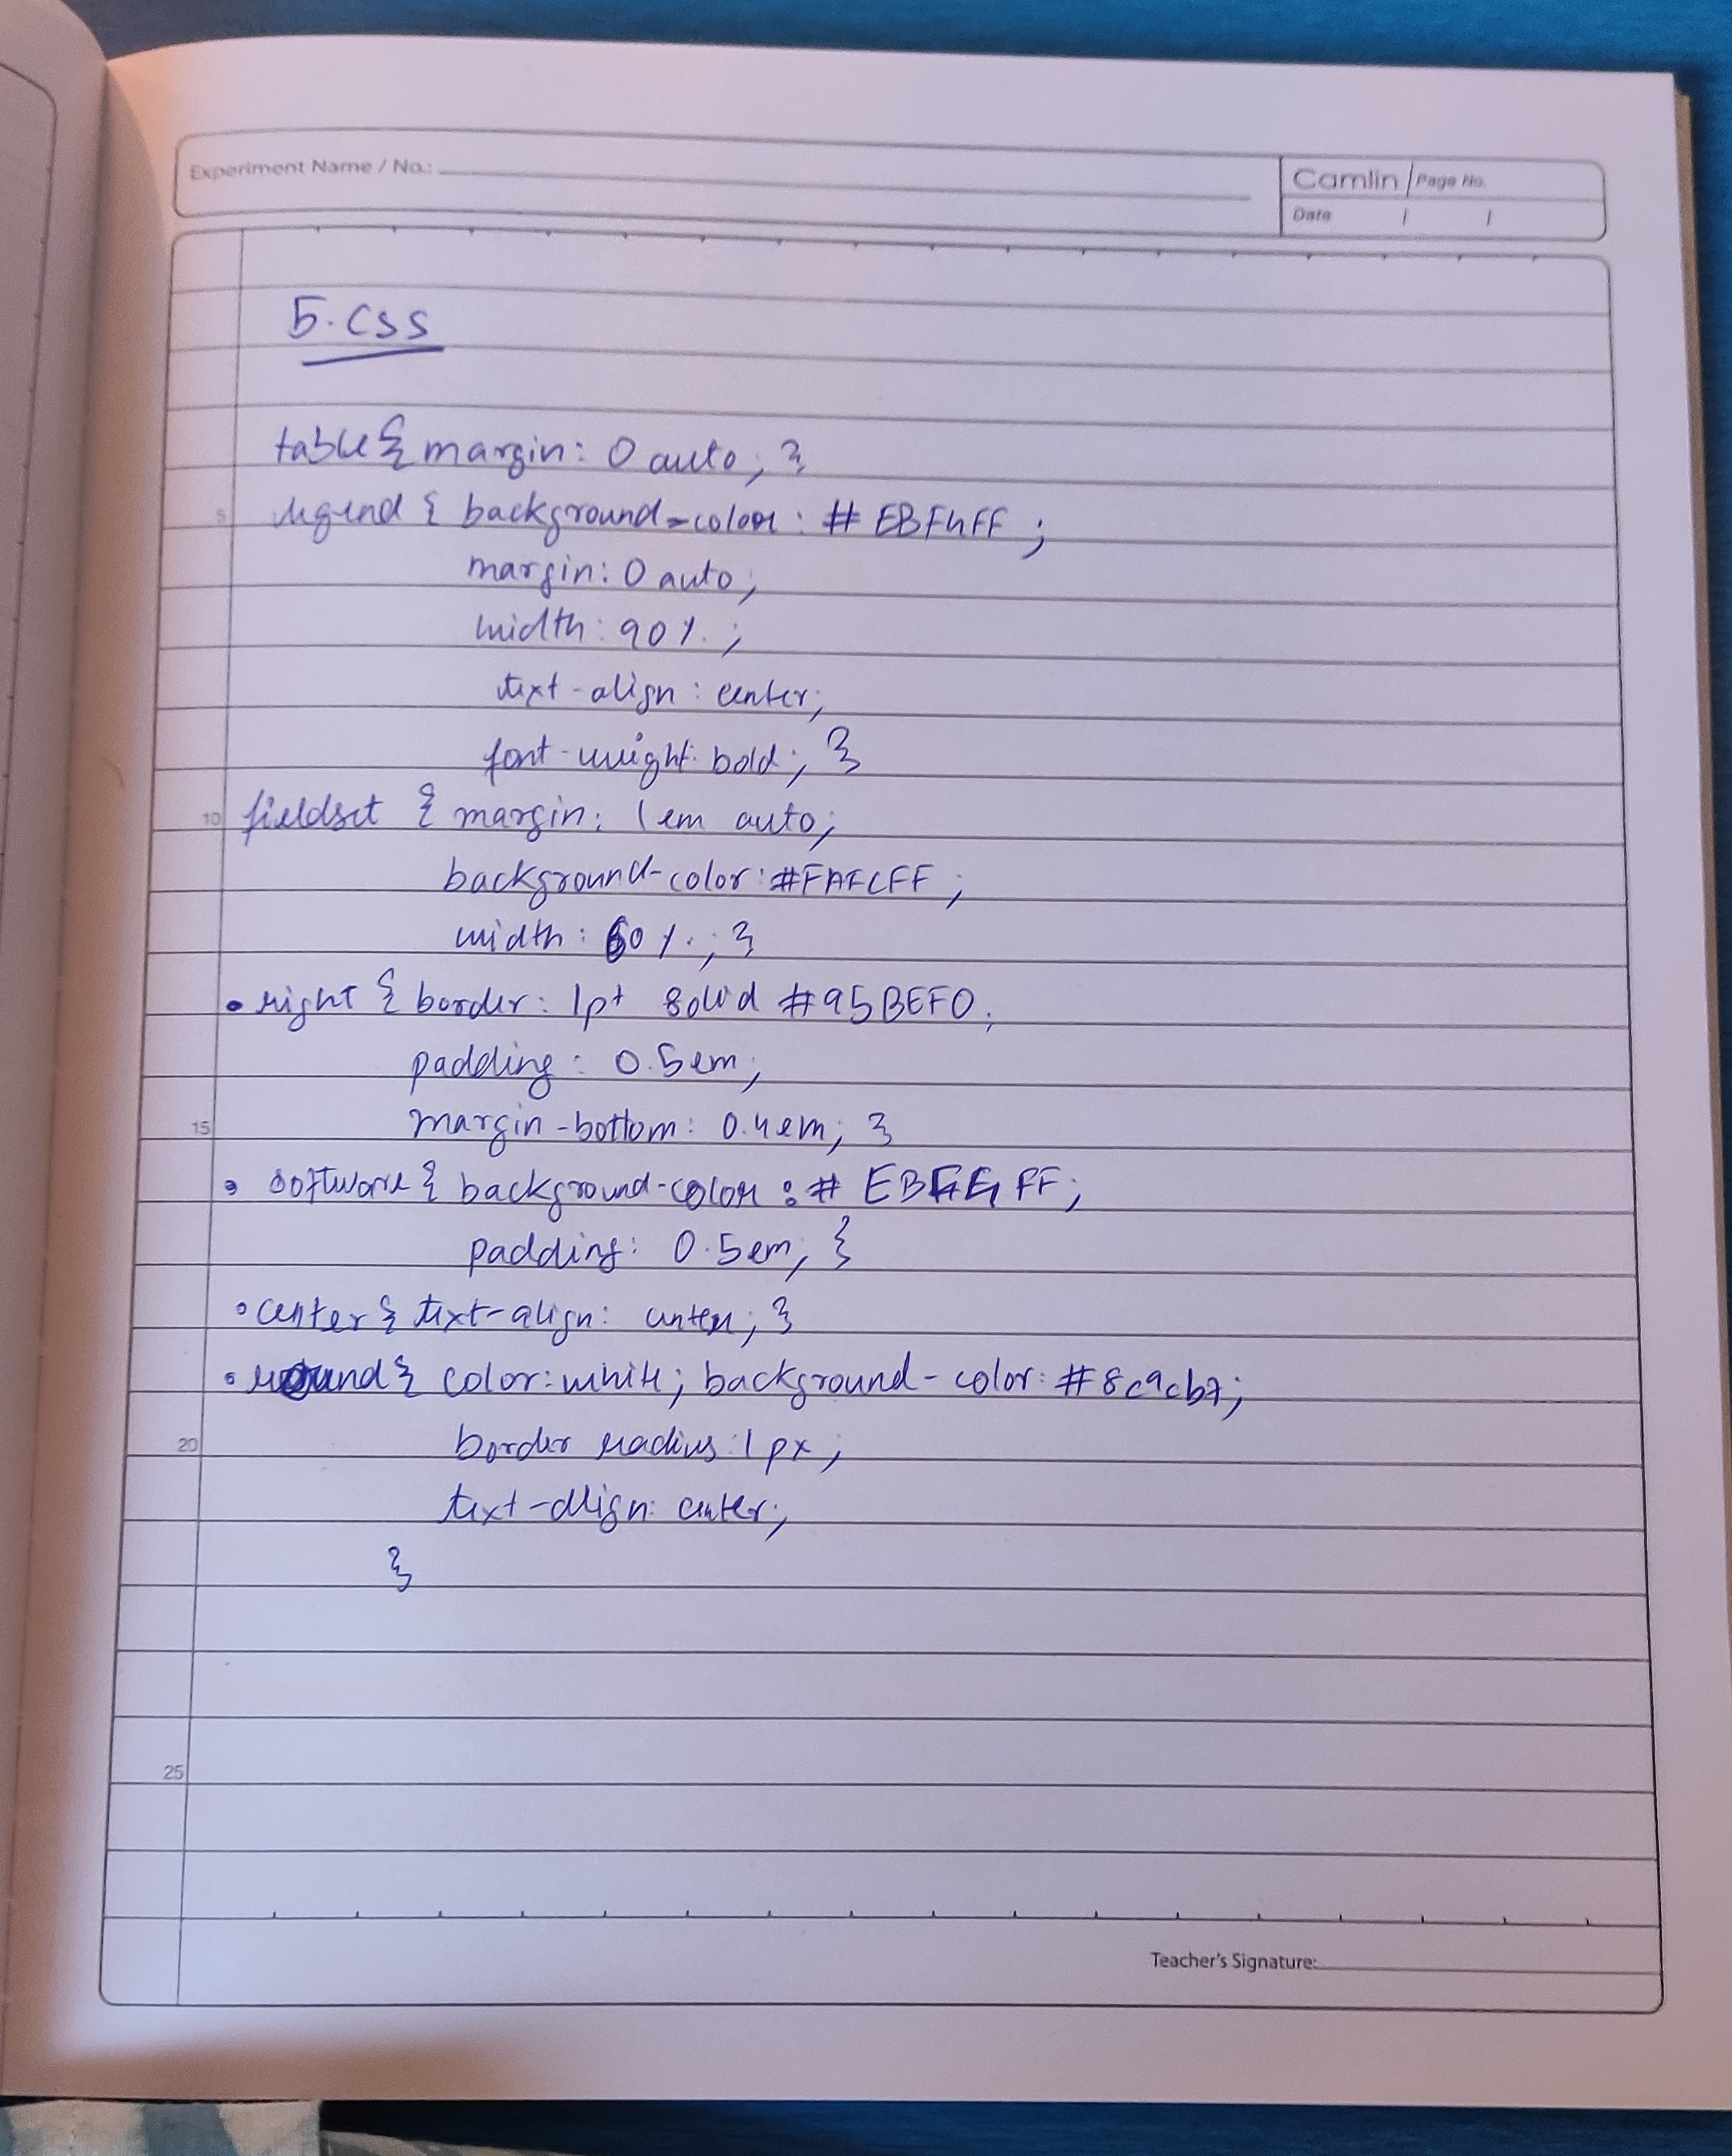 Experiment Name / No.:
Camlin Page No.
Date / /
5. CSS
table { margin: 0 auto; }
5 legend { background-color: # EBF4FF ;
margin: 0 auto;
width: 90%. ;
text-align: center;
font-weight: bold; }
10 fieldset { margin: 1em auto;
background-color: #FAFCFF ;
width: 60%. ; }
.right { border: 1pt solid #95BEF0;
padding: 0.5em;
15 margin-bottom: 0.4em; }
.software { background-color : # FF;
padding: 0.5em; }
.center { text-align: center; }
.round { color: white; background-color: #8c9cb7;
20 border radius: 1px ;
text-align: center;
}
25
Teacher's Signature: